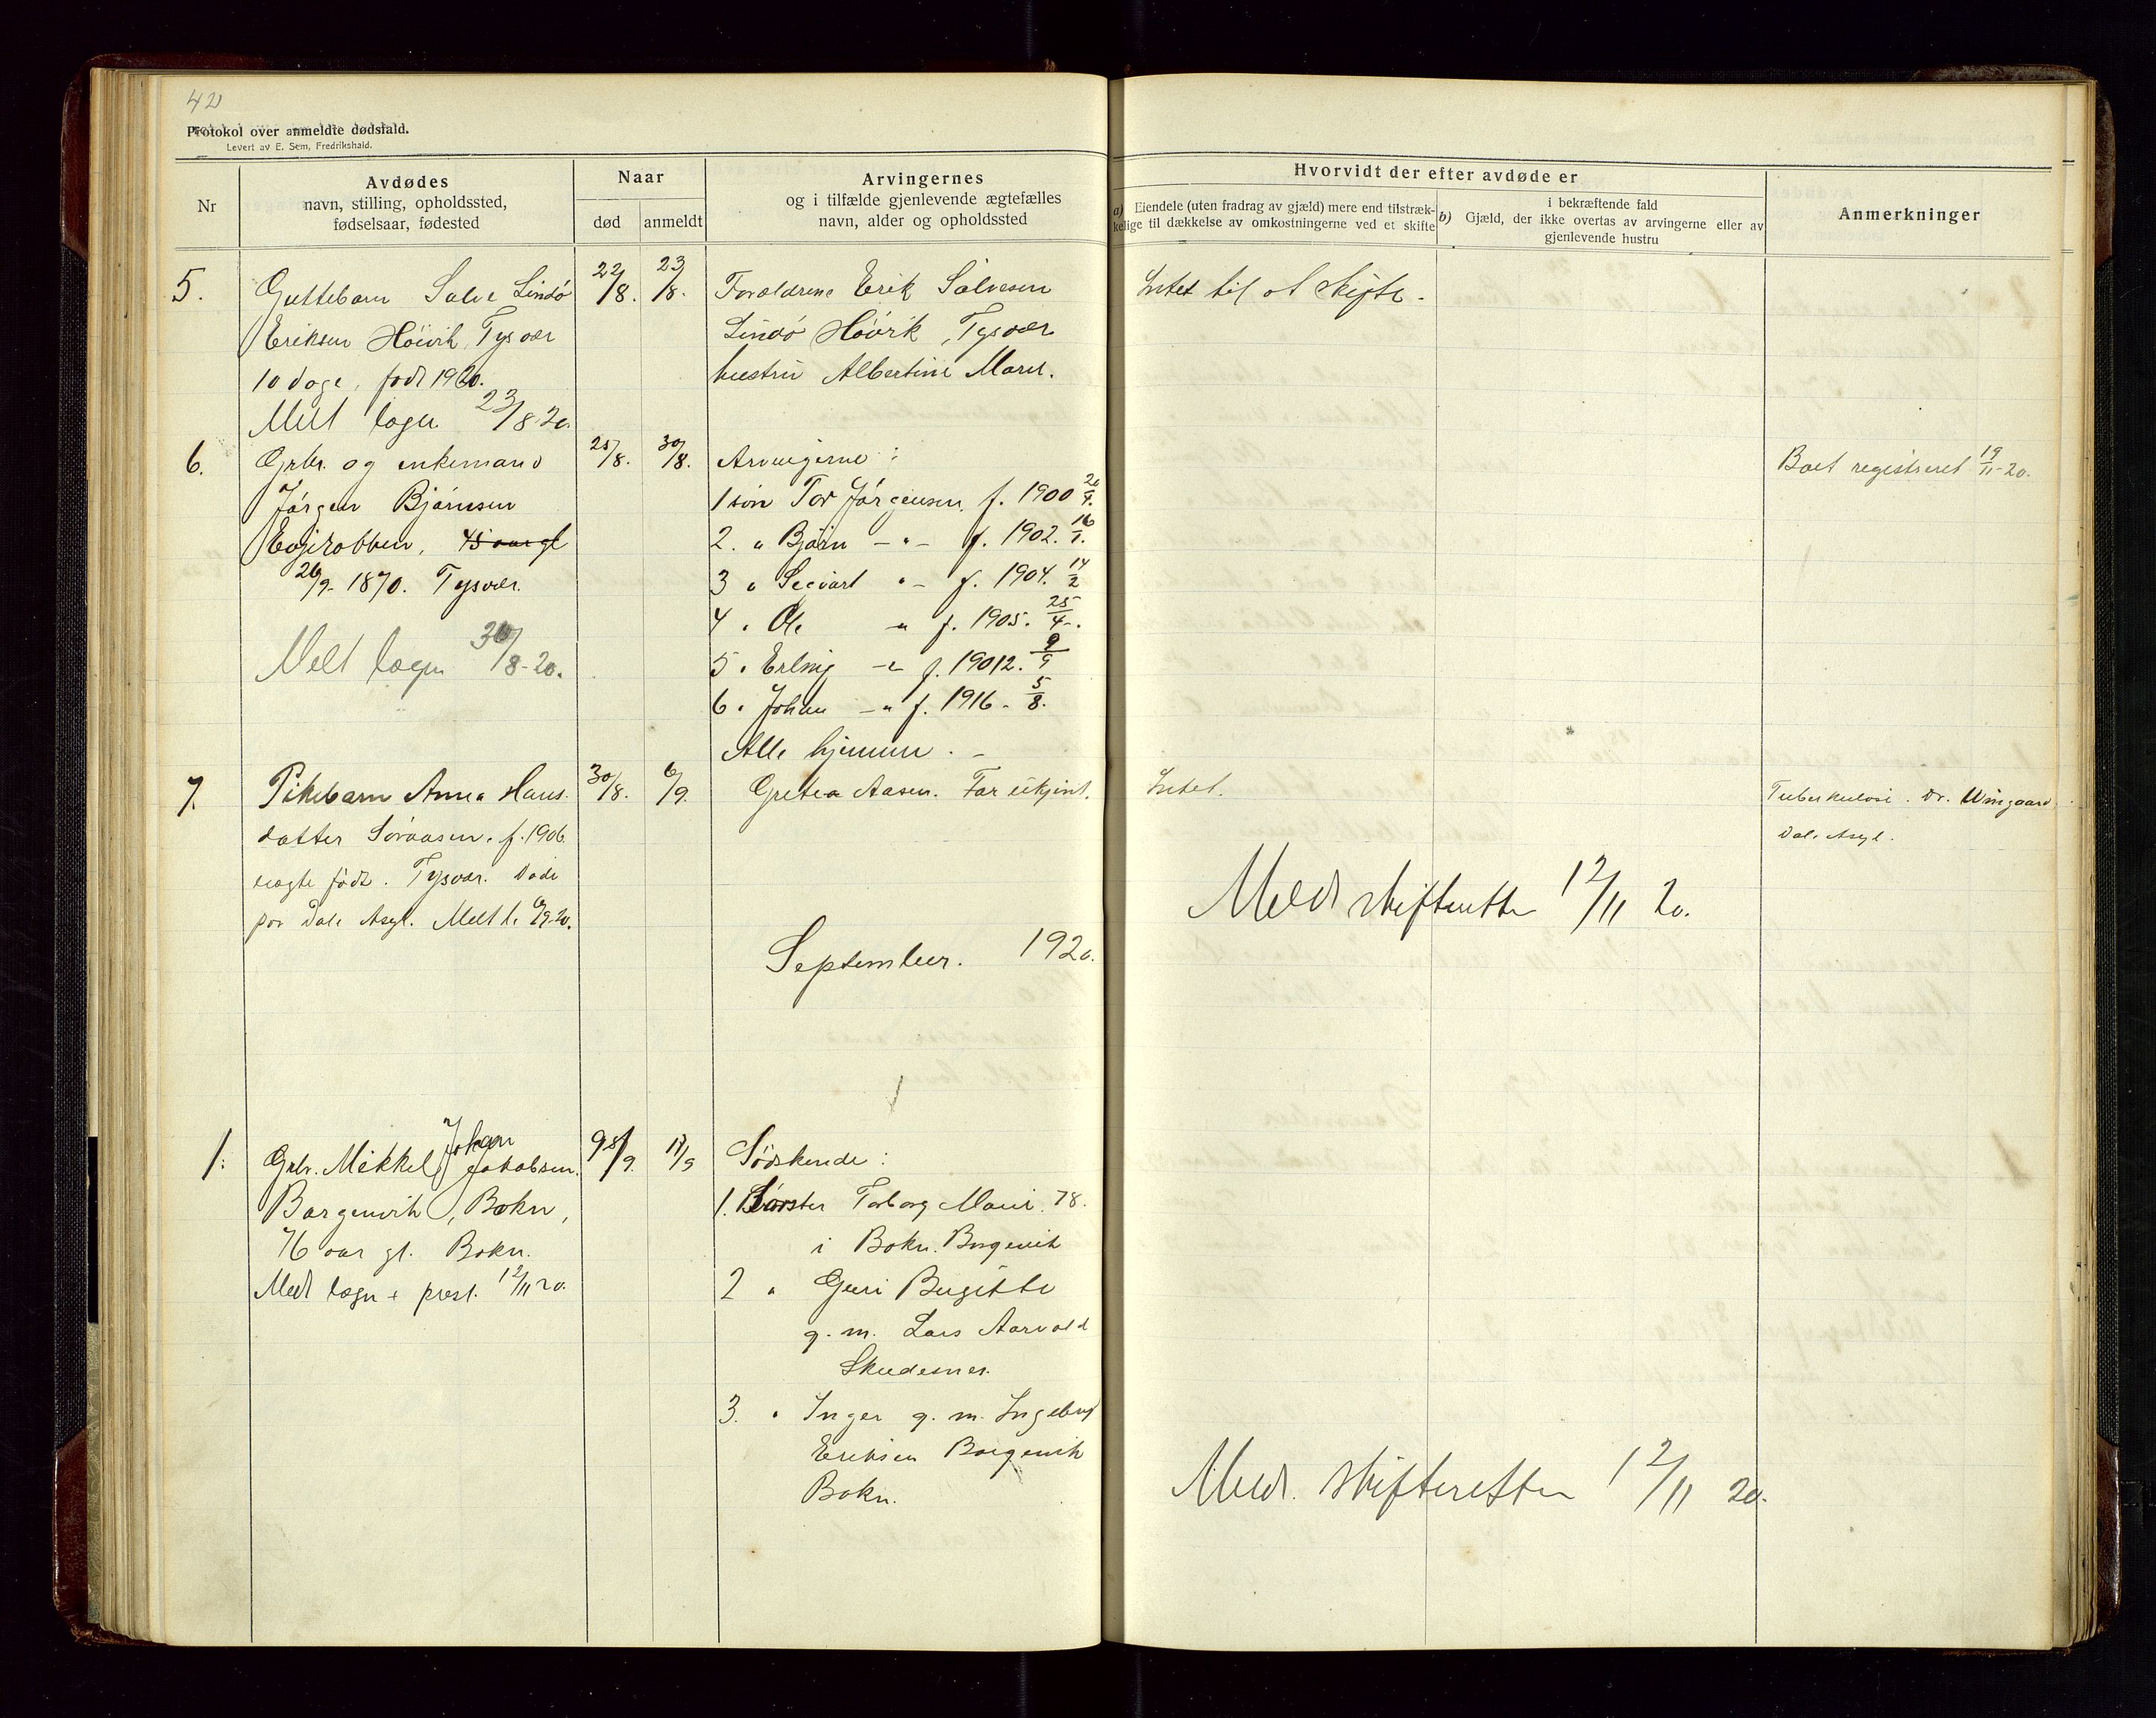 42
Protokol over anmeldte dødsfald.
Levert av E. Sem, Fredrikshald.
Nr
Avdødes
navn, stilling, opholdssted,
fødselsaar, fødested
Naar
død
anmeldt
Arvingernes
og i tilfælde gjenlevende ægtefælles
navn, alder og opholdssted
Hvorvidt der efter avdøde er
a) Eiendele (uten fradrag av gjæld) mere end tilstræk-
kelige til dækkelse av omkostningerne ved et skifte
i bekræftende fald
b) Gjæld, der ikke overtas av arvingerne eller av
gjenlevende hustru
Anmerkninger
5.
Guttebarn Salve Lindø
Eriksen Høivik, Tysvær
10 dage, født 1920.
Melt læge 23/8-20.
22/8.
23/8.
Forældrene Erik Salvesen
Lindø Høivik, Tysvær
hustru Albertine Marie.
Intet til at skifte.
6.
Grbr. og enkemand
Jørgen Bjørnsen
26/9-1870. Tysvær.
Melt læge 30/8-20.
25/8.
30/8.
Arvingerne:
1 søn Tor Jørgensen, f. 1900 20/9.
2. " Bjørn - " - f. 1902. 16/1.
3 " Sigvart " - f. 1904. 14/2
4. " Ole " f. 1905. 25/4.
5. " Erling - " f. 19012. 9/9
6. " Johan - " f. 1916 - 5/8.
Alle hjemme. -
Boet registreret 19/11-20.
7.
Pikebarn Anna Hans-
datter Søraasen. f. 1906
uægte født. Tysvær. Døde
paa Dale Asyl. Melt l. 6/9.20.
30/8.
6/9.
Gretea Aasen. Far ukjent.
Intet.
Tuberkulose. Dr. Wingaard
Dale Asyl.
Meldt skifteretten 12/11 20.
September. 1920.
1.
Grbr. Mikkel Johan Jakobsen.
Borgenvik, Bokn,
76 aar gl. Bokn.
Meldt læge + prest. 12/11 20.
/9.
/9
Sødskende:
1. Søster Torborg Marie. 78.
i Bokn. Borgenvik
2 " Guri Birgitte
g. m. Lars Aarvold
Skudesnes.
3. " Inger g. m. Ingebrigt
Eriksen Borgenvik
Bokn.
Meldt skifteretten 12/11 20.